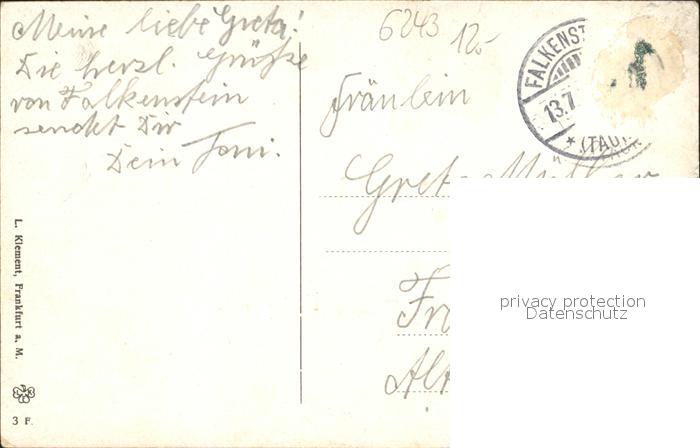 Meine liebe Greta!
Die herzl. Grüße
von Falkenstein
sendet Dir
Dein Toni.
6243 12.-
FALKENST
13.7
* (TAU
Fräulein
Greta
Fr
Alt
privacy protection
Datenschutz
L. Klement, Frankfurt a. M.
3 F.